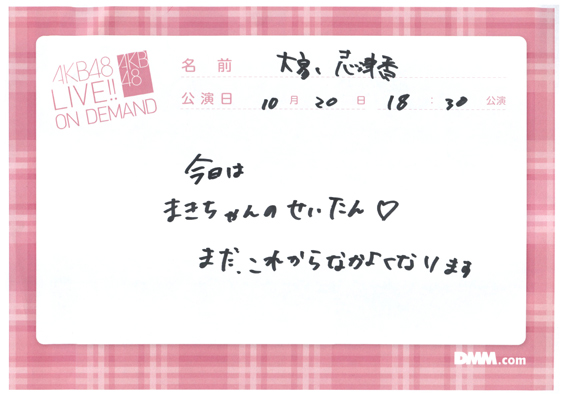 AKB48
LIVE!!
ON DEMAND
AKB
48
名前 大家 志津香
公演日 10月20日 18:30 公演
今日は
まきちゃんのせいたん♡
まだ、これからなかよくなります
DMM.com